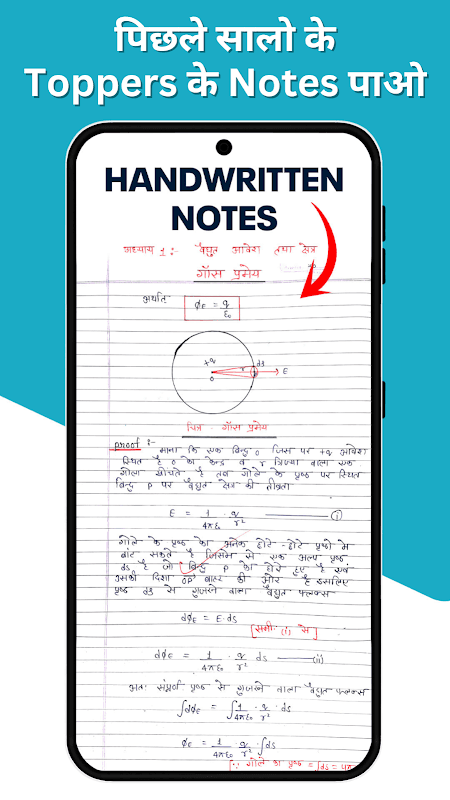 पिछले सालो के
Toppers के Notes पाओ
HANDWRITTEN
NOTES
अध्याय 1 :- वैद्युत आवेश तथा क्षेत्र
गॉस प्रमेय
अर्थात् ϕE = q/ε₀
+q r ds E
O
चित्र - गॉस प्रमेय
proof :-
माना कि एक बिन्दु O जिस पर +q आवेश
स्थित है O को केन्द्र व r त्रिज्या वाला एक
गोला खींचते है तब गोले के पृष्ठ पर स्थित
बिन्दु P पर वैद्युत क्षेत्र की तीव्रता
E = 1/4πε₀ · q/r² —— (i)
गोले के पृष्ठ को अनेक छोटे-छोटे पृष्ठो मे
बांट सकते है जिसमे से एक अल्प पृष्ठ
ds है जो बिन्दु P को घेरे हुए है एवं
इसकी दिशा OP वाल्य की ओर है इसलिए
पृष्ठ ds से गुजरने वाला वैद्युत फ्लक्स
dϕE = E·ds
[समी. (i) से]
dϕE = 1/4πε₀ · q/r² ds —— (ii)
अतः संपूर्ण पृष्ठ से गुजरने वाला वैद्युत फ्लक्स
∫dϕE = ∫1/4πε₀ · q/r² · ds
ϕE = 1/4πε₀ · q/r² · ∫ds
[∵ गोले का पृष्ठ = ∫ds = 4π